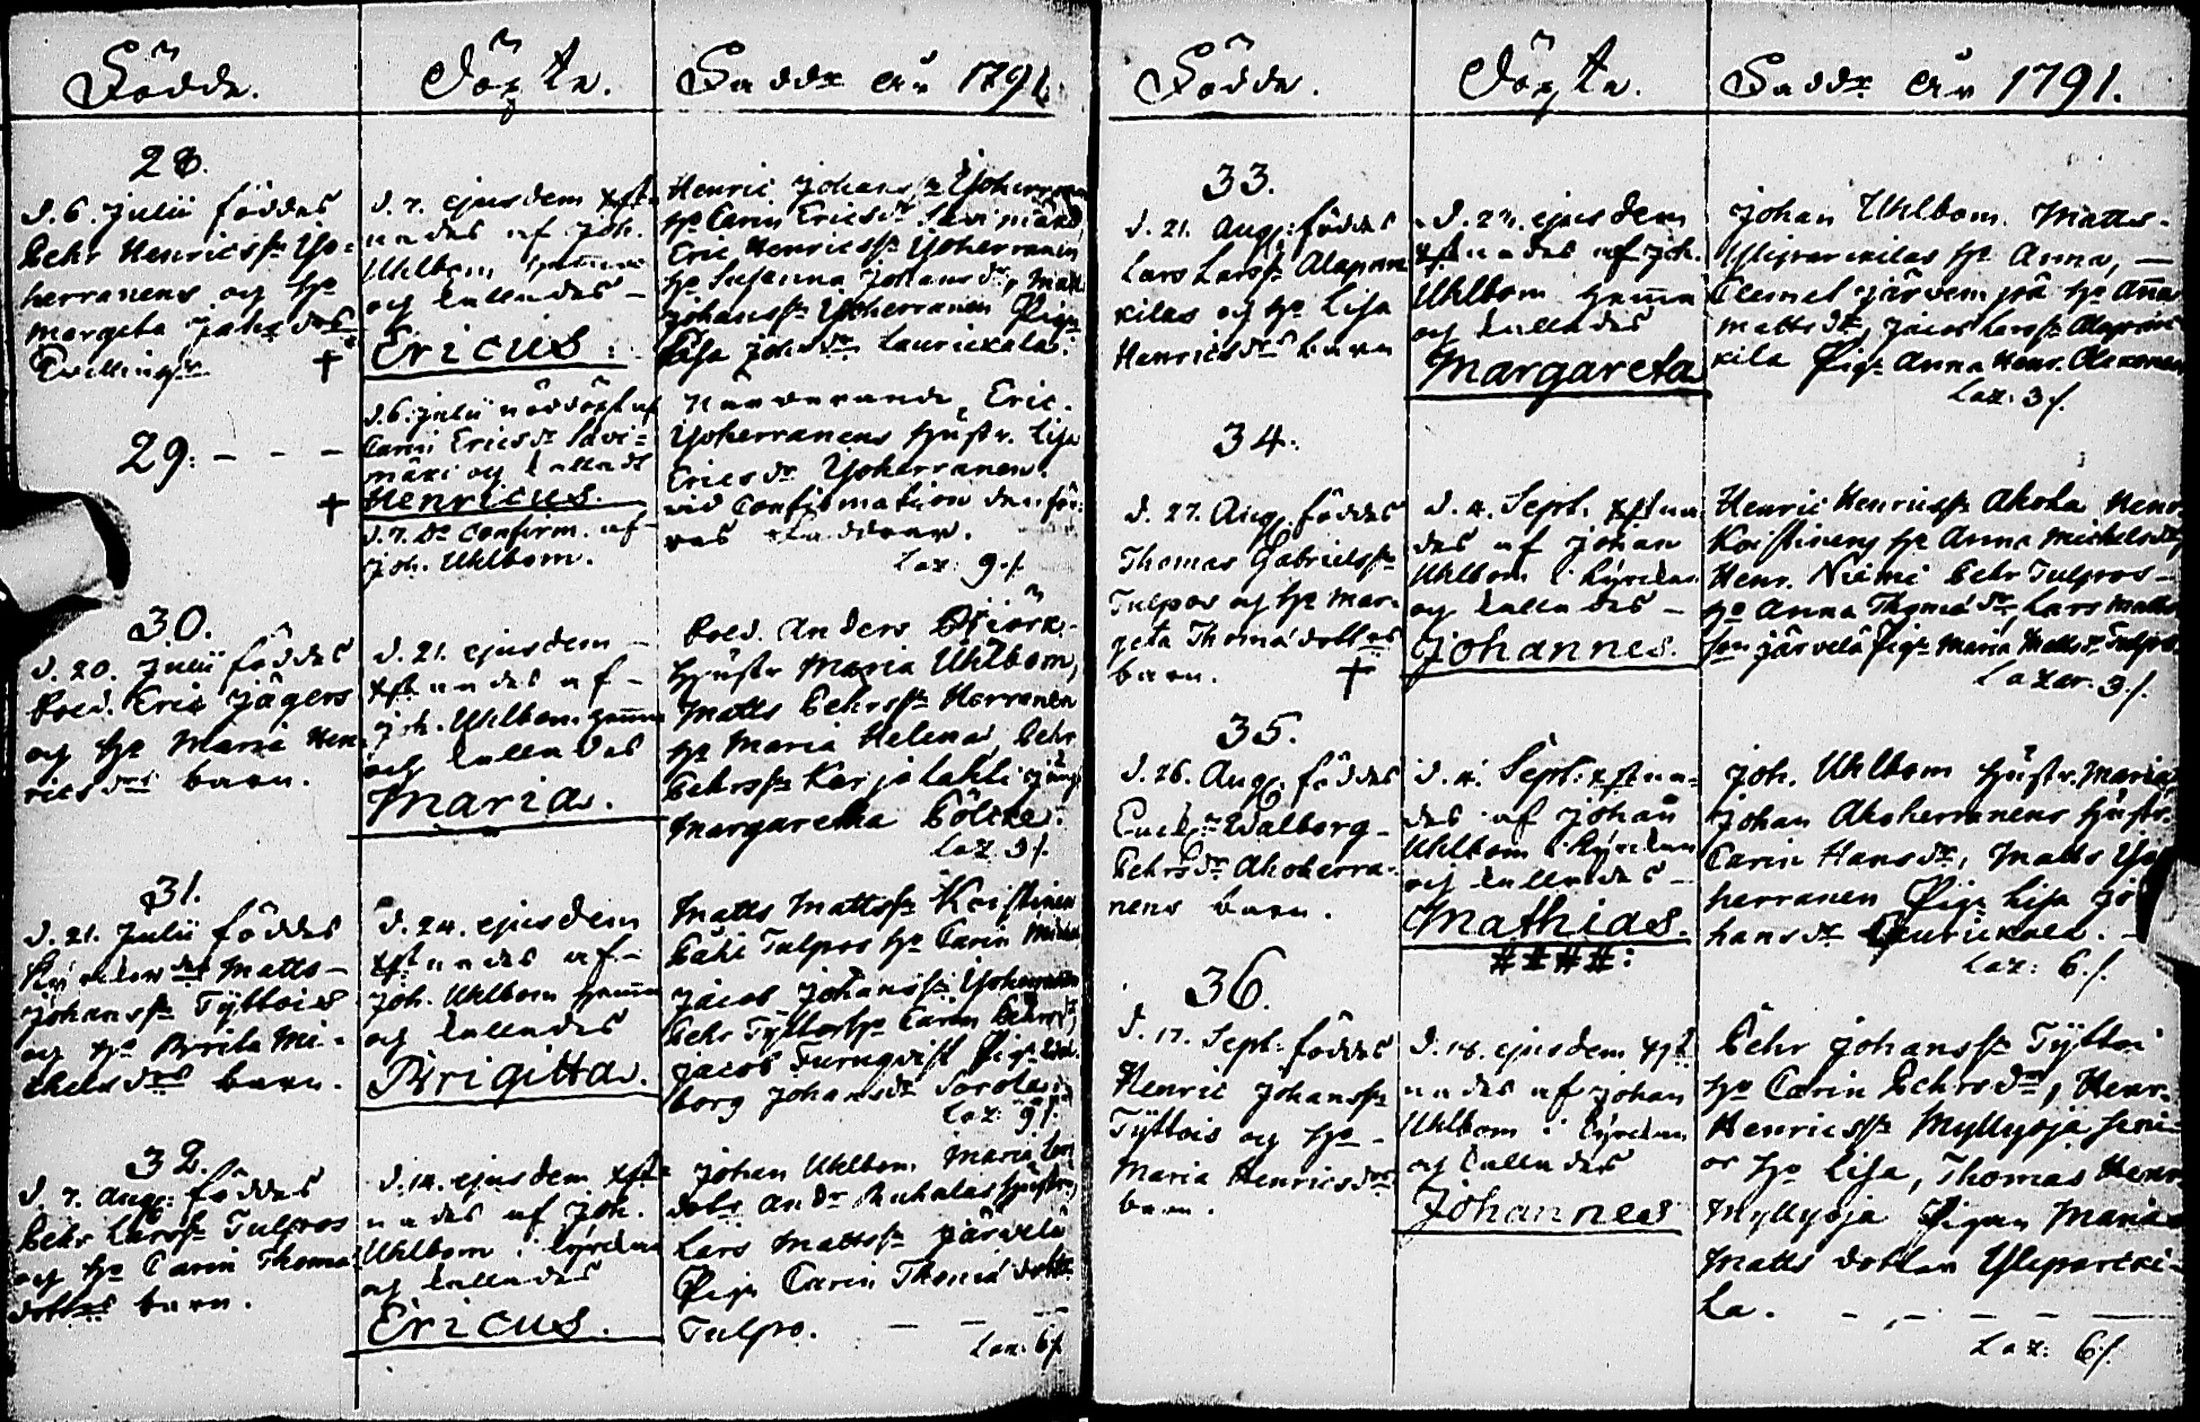 Födde.
Döpte.
Faddr År 1791.
28.
d. 6. Julii föddes
Pehr Henricss: Yo=
herranens og H:o
Margeta Joh: d:rs
Tvillingr †
d. 7. ejusdem Xst=
nades af Joh.
Uhlbom hemma
og kallades –
Ericus.
Henric Johanss: Yoherranen
H:o Carin Ericsd:r Savimäki
Eric Henricss: Yoherranen
H:o Susanna Johansd:r, Matts
Johanss: Yoherranen Pig:
Lisa Johsd:r Lauriekala.
29. – – –
†
d. 6. Julii nöddöpt af
Carin Ericsd:r Savi=
mäki og kallads
Henricus.
d. 7. D:o Confirm. af
Joh. Uhlbom.
Närvarande, Eric
Yoherranens Hustr. Lisa
Ericsd:r Yoherranen.
vid Confirmation den för:
Faddrar.
Laz: 9 s.
30.
d. 20. Julii föddes
Eric Jägers
og H:o Maria Hen=
ricsd:rs barn.
d. 21. ejusdem –
Xstnades af –
Joh. Uhlbom hemma
og kallades
Maria.
Anders Björk
Hustr Maria Uhlbom,
Matts Pehrss: Herranen
H:o Maria Helena, Pehr
Pehrss: Karjalahti
Margaretha Pölcke.
Laz. 3 s.
31.
d. 21. Julii föddes
Matts –
Johanss: Tyttois
og H:o Brita Mi=
chelsd:rs barn.
d. 24. ejusdem
Xstnades af –
Joh. Uhlbom hemma
og kallades
Brigitta.
Matts Mattss: Koistinen
Tulpos H:o Carin
Jacob Johanss: Yoherranen
Pehr Tyttois H:o Carin Pehrsd:r
Jacob Furuqvist Pig: Wal=
borg Johansd:r Sorola
Laz: 9 s.
32.
d. 7. Aug: föddes
Pehr Larss: Tulpos
og H:o Carin Thoma
dotters barn.
d. 14. ejusdem Xst=
nades af Joh.
Uhlbom i kyrckan
og kallades
Ericus.
Johan Uhlbom Maria
And:r Huhalas Hustr.
Lars Mattss: Järvelä
Pig: Carin Thoma dotter
Tulpo. – – –
Laz. 6 s.
Födde.
Döpte.
Faddr År 1791.
33.
d. 21. Aug: föddes
Lars Larss: Alaparcki=
kilas og H:o Lisa
Henricsd:rs barn
d. 27. ejusdem
Xstnades af Joh.
Uhlbom hemma
og kallades
Margareta
Johan Uhlbom. Matts
Yliparckilas H:o Anna, –
Clemet Järvenpä H:o Anna
Mattsd:r, Jacob Larss: Alaparc
kila Pig: Anna Henr.
Laz. 3 s.
34.
d. 27. Aug. föddes
Thomas Gabrielss:
Tulpos og H:o Mar=
geta Thomadotters
barn. †
d. 4. Sept. Xstna
des af Johan
Uhlbom i kyrckan
og kallades –
Johannes.
Henric Henricss: Ahoka Henr.
Koistinens H:o Anna Michelsd:r,
Henr. Niemi Pehr Tulpos –
H:o Anna Thomad:r, Lars Matts
son Järvelä Pig: Maria Mattsd:r Tulpo.
Lazar. 3 s.
35.
d. 26. Aug. föddes
Walborg –
Pehrsd:r Ahoherra=
nens barn.
d. 4. Sept. Xstna=
des af Johan
Uhlbom i kyrckan
og kallades –
Mathias.
####:
Joh. Uhlbom Hustr. Maria,
Johan Ahoherranens Hustr.
Carin Hansd:r, Matts Yo
herranen Pig: Lisa Jo
hansd:r Lauriekala. –
Laz: 6 s.
36.
d. 17. Sept: föddes
Henric Johanss:
Tyttois og H:o –
Maria Henricsd:rs
barn.
d. 18. ejusdem Xst
nades af Johan
Uhlbom i kyrckan
og kallades
Johannes
Pehr Johanss: Tyttoi
H:o Carin Pehrsd:r, Henr.
Henricss: Myllyoja seni=
or H:o Lisa, Thomas Henr.
Myllyoja Pigan Maria
Matts dotter Yliparcki=
la. – – – – –
Laz: 6 s.